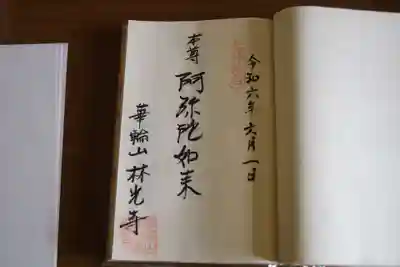 令和六年 六月 一日
本尊 阿弥陀如来
華輪山 林光寺